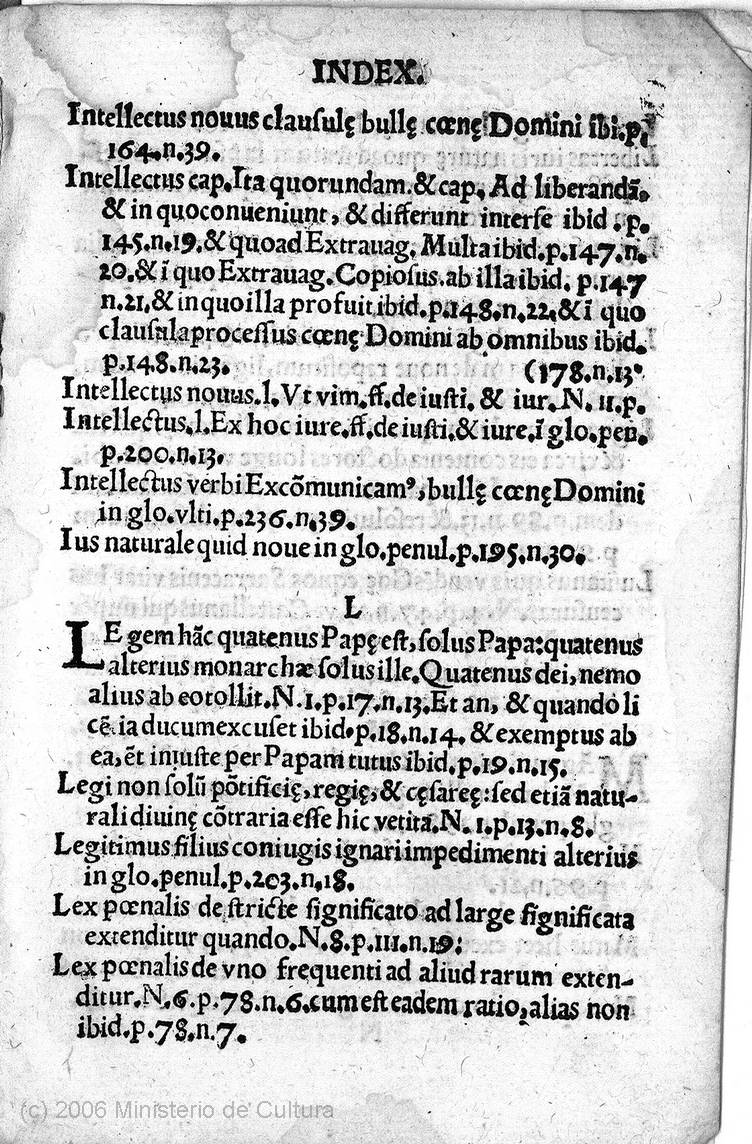 INDEX.
Intellectus nouus clausulę bullę cœnę Domini ibi.p.
164.n.39.
Intellectus cap.Ita quorundam.&cap. Ad liberandã,
& in quoconueniunt, & differunt interse ibid. p.
145.n.19.&quoad Extrauag. Multa ibid.p.147.n.
20.&ĩ quo Extrauag.Copiosus.ab illa ibid. p.147
n.21.& in quo illa profuit ibid.p.148.n.22.&ĩ quo
clausula processus cœnę Domini ab omnibus ibid.
p.148.n.23. (178.n.13.
Intellectus nouus.l.Vt vim.ff.de iusti. & iur.N. 11.p.
Intellectus.l.Ex hoc iure.ff.de iusti.& iure.ĩ glo.pen.
p.200.n.13.
Intellectus verbi Excõmunicamꝰ, bullę cœnę Domini
in glo.vlti.p.236.n.39.
Ius naturale quid noue in glo.penul.p.195.n.30.
L
LEgem hãc quatenus Papę est, solus Papa:quatenus
alterius monarchæ solus ille.Quatenus dei, nemo
alius ab eo tollit.N.1.p.17.n.13.Et an, & quando li
cẽtia ducum excuset ibid.p.18.n.14. & exemptus ab
ea, ẽt iniuste per Papam tutus ibid.p.19.n.15.
Legi non solũ põtificię, regię, & cęsareę:sed etiã natu-
rali diuinę cõtraria esse hic vetita.N. 1.p.13.n.8.
Legitimus filius coniugis ignari impedimenti alterius
in glo.penul.p.203.n.18.
Lex pœnalis de stricte significato ad large significata
extenditur quando.N.8.p.111.n.19:
Lex pœnalis de vno frequenti ad aliud rarum exten-
ditur.N.6.p.78.n.6.cum est eadem ratio, alias non
ibid.p.78.n.7.
(c) 2006 Ministerio de Cultura